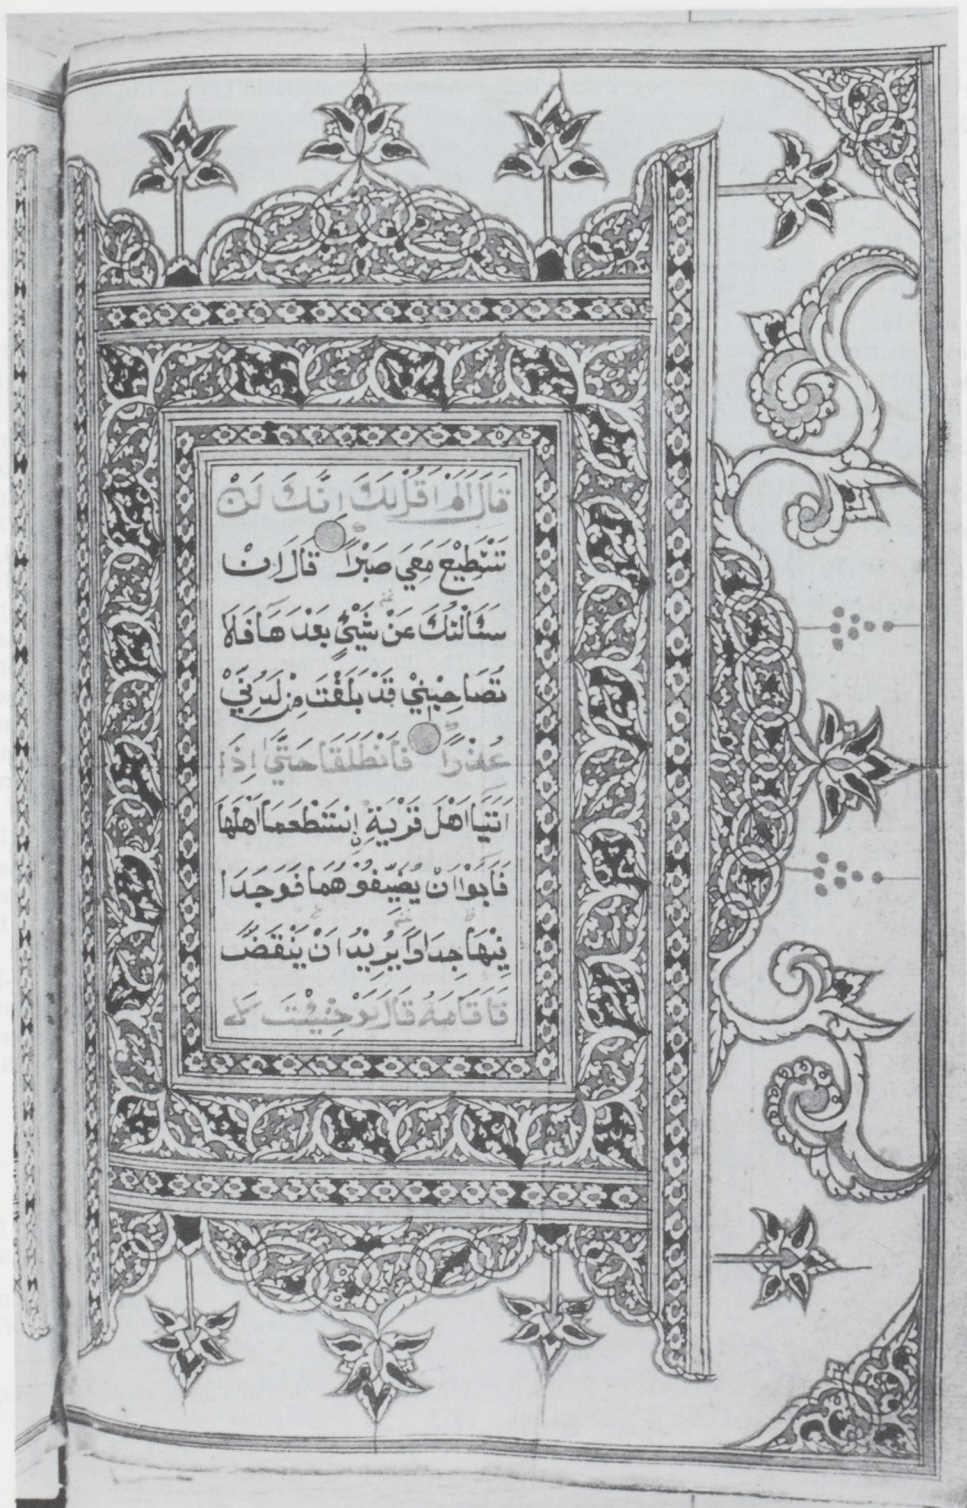 قَالَ اَلَمْ اَقُلْ لَكَ اِنَّكَ لَنْ
تَسْتَطِيْعَ مَعِيَ صَبْرًا قَالَ اِنْ
سَئَالْتُكَ عَنْ شَيْءٍ بَعْدَهَا فَلَا
تُصَاحِبْنِيْ قَدْ بَلَغْتَ مِنْ لَدُنِّيْ
عُذْرًا فَانْطَلَقَا حَتَّىٰ اِذَا
اَتَيَا اَهْلَ قَرْيَةِ اِسْتَطْعَمَا اَهْلَهَا
فَاَبَوْا اَنْ يُضَيِّفُوْ هُمَا فَوَجَدَا
فِيْهَا جِدَارًا يُرِيْدُ اَنْ يَنْقَضَّ
فَاَقَامَهُ قَالَ لَوْ شِئْتَ لَ